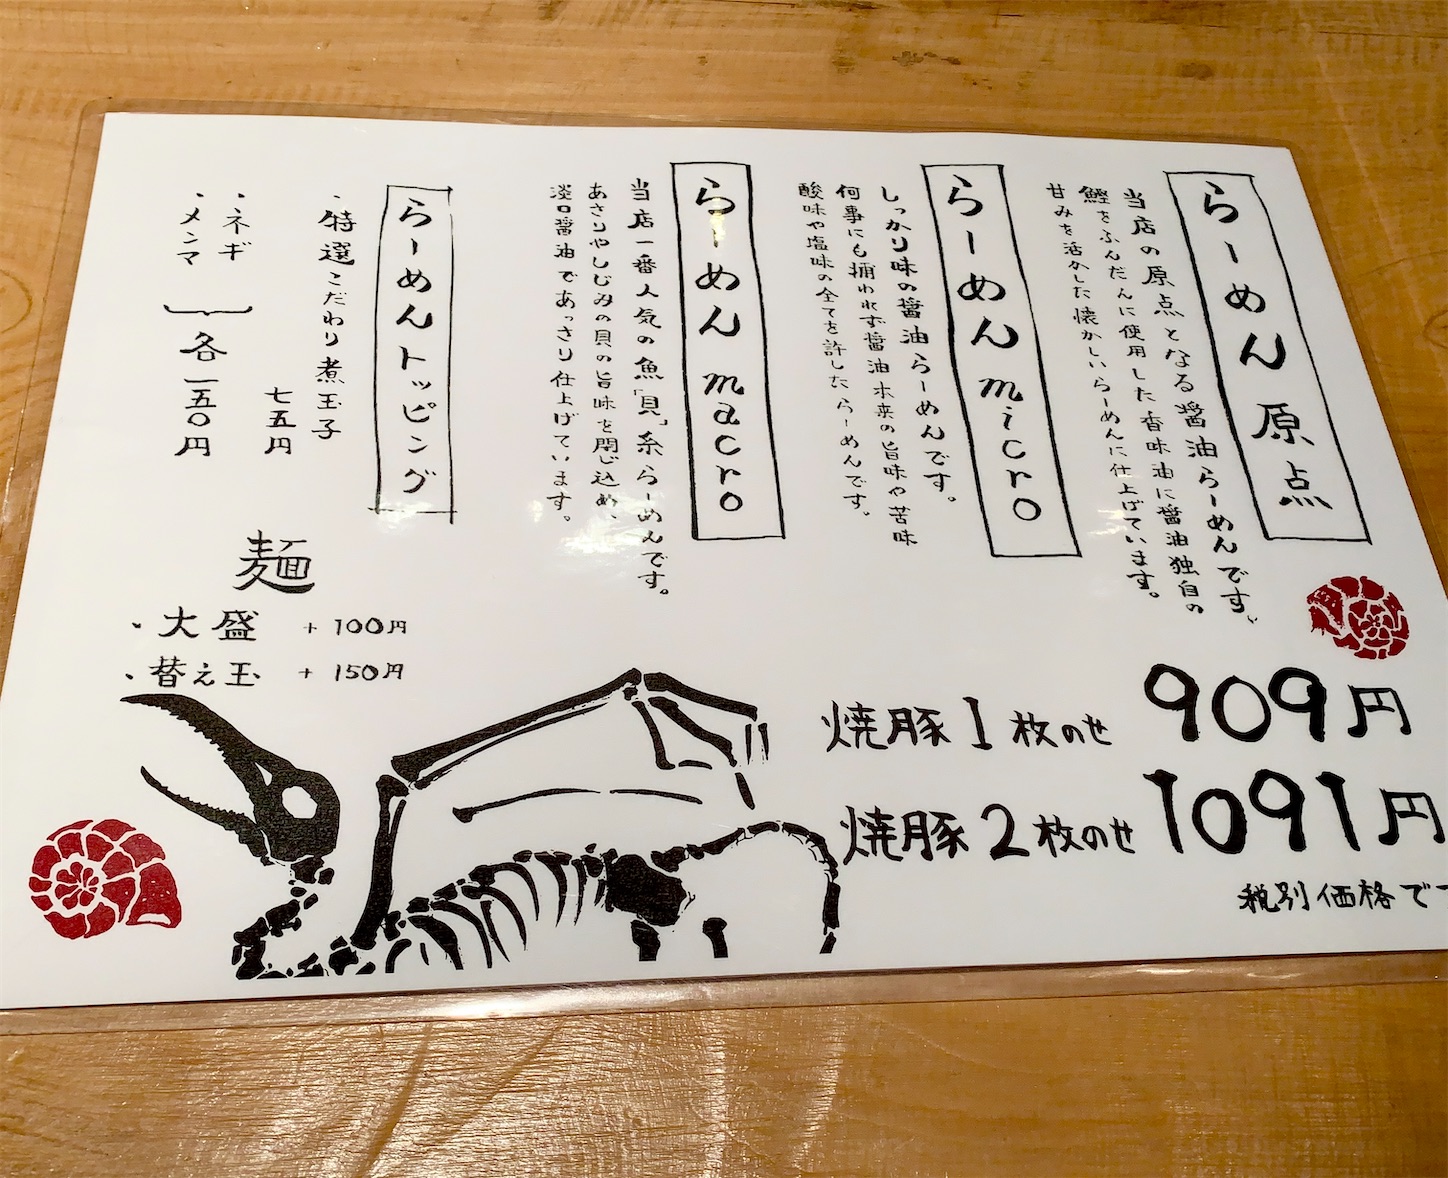 らーめん 原点
当店の原点となる醤油らーめんです。
鰹をふんだんに使用した香味油に醤油独自の
甘みを活かした懐かしいらーめんに仕上げています。
らーめん micro
しっかり味の醤油らーめんです。
何事にも捕われず醤油本来の旨味や苦味
酸味や塩味の全てを許したらーめんです。
らーめん macro
当店一番人気の魚「貝」系らーめんです。
あさりやしじみの貝の旨味を閉じ込め、
淡口醤油であっさり仕上げています。
らーめんトッピング
・特選こだわり煮玉子
七五円
・ネギ
・メンマ
各一五〇円
麺
・大盛 + 100円
・替え玉 + 150円
焼豚1枚のせ 909円
焼豚2枚のせ 1091円
税別価格で